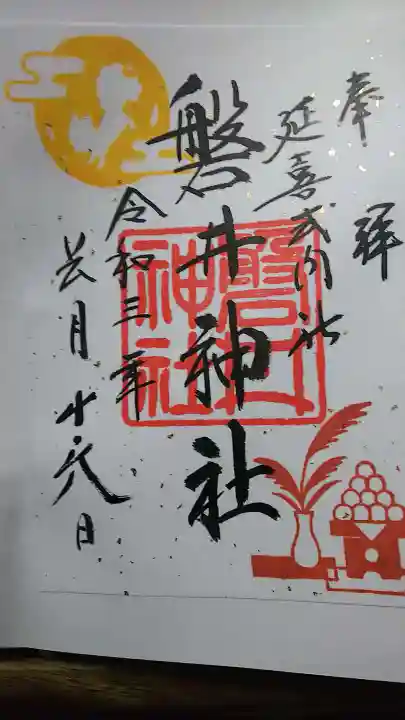 奉拝
延喜式内社
磐井神社
磐井神社
令和三年
月十日